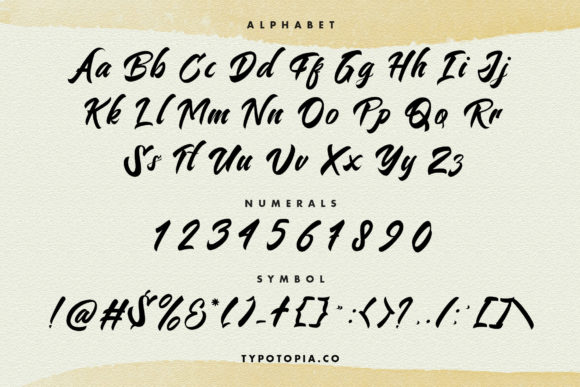 ALPHABET
Aa Bb Cc Dd Ff Gg Hh Ii Jj
Kk Ll Mm Nn Oo Pp Qq Rr
Ss Tt Uu Vv Xx Yy Zz
NUMERALS
1 2 3 4 5 6 7 8 9 0
SYMBOL
!@#$%&*()_+{}":<>?,./;'[]\
TYPOTOPIA.CO